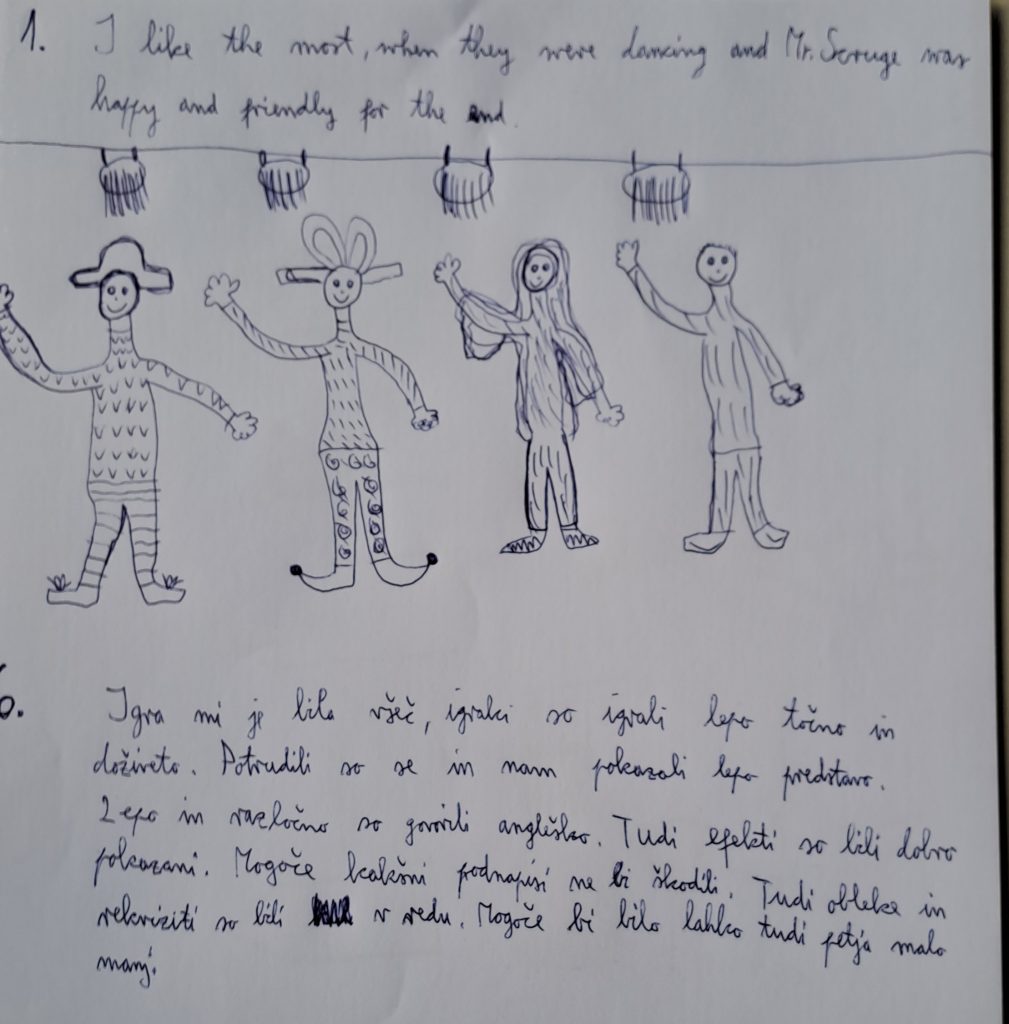 1. I like the most, when they were dancing and Mr. Scruge was
happy and friendly for the end.
6. Igra mi je bila všeč, igralci so igrali lepo točno in
doživeto. Potrudili so se in nam pokazali lepo predstavo.
Lepo in razločno so govorili angleško. Tudi efekti so bili dobro
pokazani. Mogoče kakšni podnapisi ne bi škodili. Tudi obleke in
rekviziti so bili v redu. Mogoče bi bilo lahko tudi petja malo
manj.